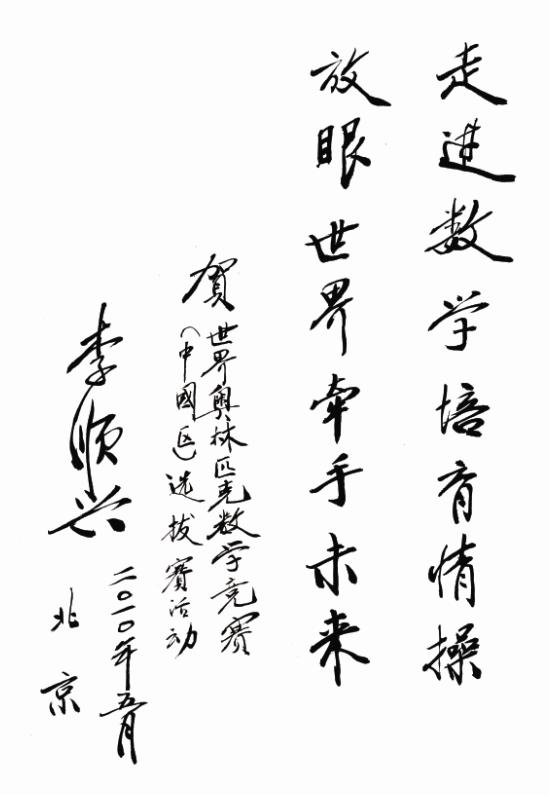 走进数学培育情操
放眼世界牵手未来
贺世界奥林匹克数学竞赛
（中國区）选拔赛活动
李顺兴
二〇一〇年五月
北京